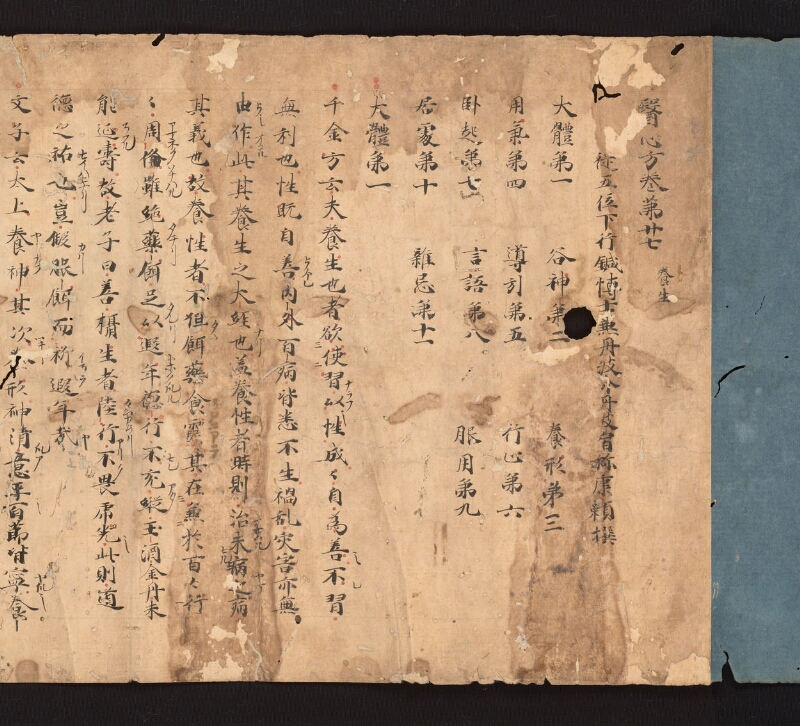 醫心方卷第廿七 養生
從五位下行鍼博士兼丹波介丹波宿祢康頼撰
大體第一 谷神第二 養形第三
用氣第四 導引第五 行止第六
臥起第七 言語第八 服用第九
居處第十 雜忌第十一
大體第一
千金方云夫養生也者欲使習以性成々自為善不習
無利也性既自善內外百病皆悉不生禍乱灾害亦無
由作此其養生之大經也盖養性者時則治未病之病
其義也故養性者不但餌藥飡霞其在兼於百々行
々周備雖絶藥餌足以遐年德行不充縱玉酒金丹未
能延壽故老子曰善攝生者陸行不畏虎兕此則道
德之祐也豈假服餌而祈遐年哉
文子云太上養神其次養形神清意平百節皆寧養